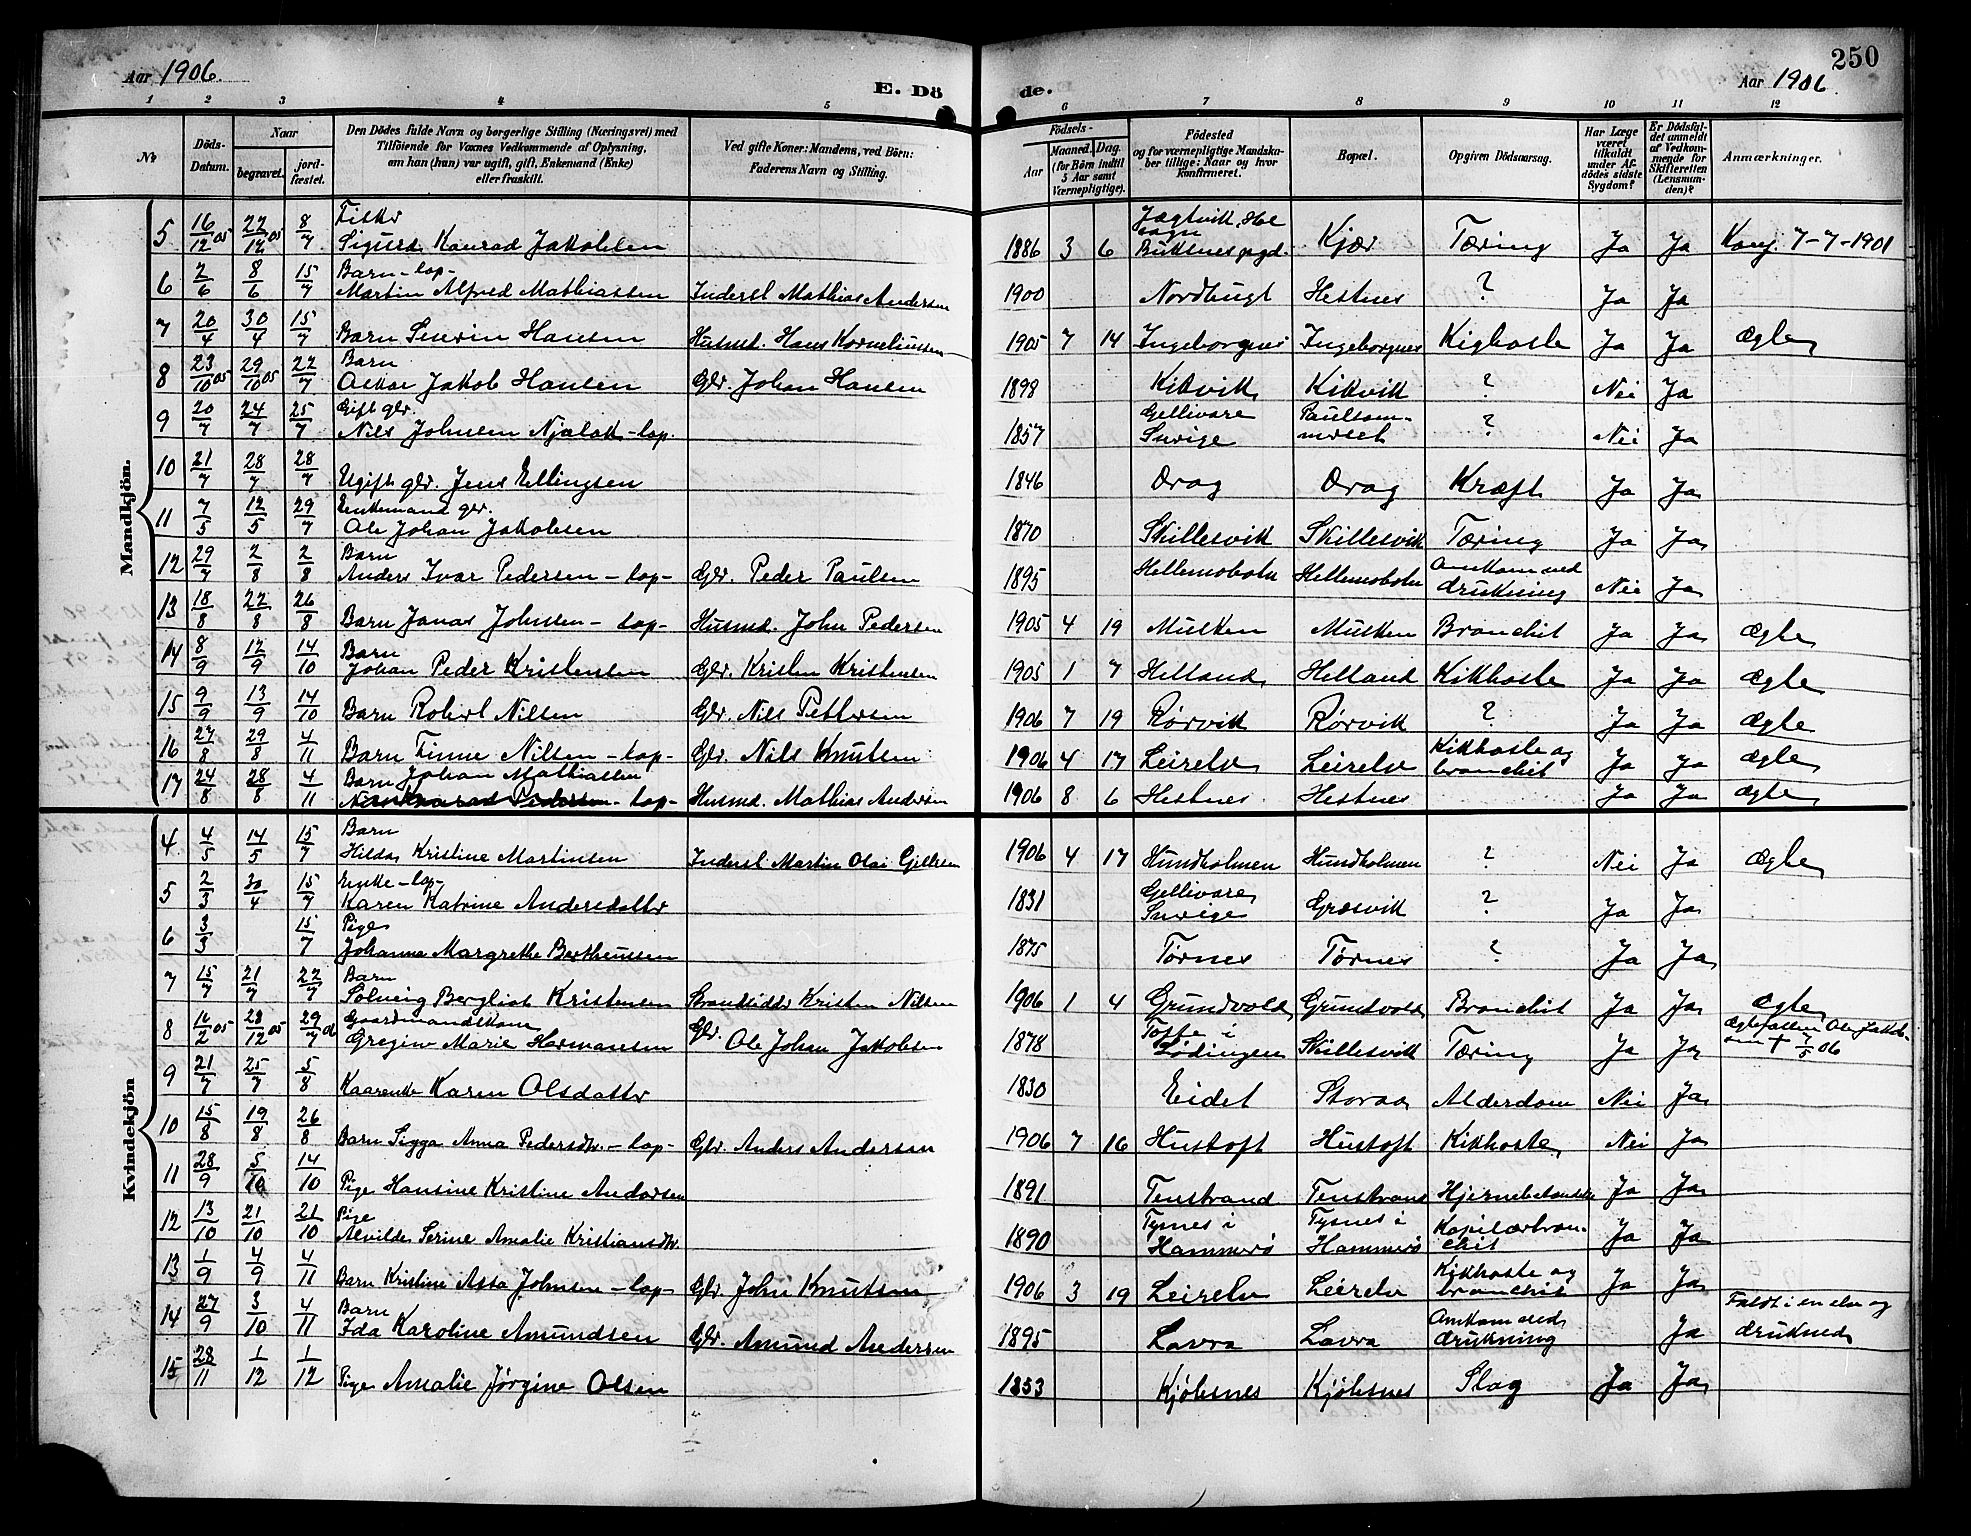 250
Aar 1906.
Aar 1906.
E. Dö
de.
1 2 3 4 5
6 7 8 9 10 11 12
No
Döds-
Datum.
Naar
begravet.
jord-
fæstet.
Den Dödes fulde Navn og borgerlige Stilling (Næringsvei) med
Tilföiende for Voxnes Vedkommende af Oplysning,
om han (hun) var ugift, gift, Enkemand (Enke)
eller fraskilt.
Ved gifte Koner: Mandens, ved Börn:
Faderens Navn og Stilling.
Födsels-
Aar
Maaned. Dag.
(for Börn indtil
5 Aar samt
Værnepligtige).
Födested
og for værnepligtige Mandska-
ber tillige: Naar og hvor
konfirmeret.
Bopæl.
Opgiven Dödsaarsag.
Har Læge
været
tilkaldt
under Af-
dödes sidste
Sygdom?
Er Dödsfal-
det anmeldt
af Vedkom-
mende for
Skifteretten
(Lensman-
den)?
Anmærkninger.
Mandkjön.
5 16/12 05 22/12 05 8/7 Fisker
Sigurd Konrad Jakobsen 1886 3 6 Buksnes pgd. Kjær Tæring Ja Ja Konf. 7-7-1901
6 2/6 8/6 15/7 Barn - lap -
Martin Alfred Mathiassen Inderst Mathias Andersen 1900 Nordbugt Hestnes ? Ja Ja
7 20/4 30/4 15/7 Barn Severin Hansen Husmd. Hans Korneliussen 1905 7 14 Ingeborgnes Ingeborgnes Kighoste Ja Ja Ægte
8 23/10 05 29/10 05 22/7 Barn
Oskar Jakob Hansen Gbr. Johan Hansen 1898 Kikvik Kikvik ? Nei Ja
9 20/7 24/7 25/7 Gift gbr.
Nils Johnsen Njalak - lap. 1857 Gellivare
Sverige ? Nei Ja
10 21/7 28/7 28/7 Ugift gbr. Jens Ellingsen 1846 Drag Drag Kræft Ja Ja
11 7/5 12/5 29/7 Enkemand gbr.
Ole Johan Jakobsen 1870 Skillesvik Skillesvik Tæring Ja Ja
12 29/7 2/8 2/8 Barn
Anders Ivar Pedersen - lap - Gbr. Peder Paulsen 1895 Hellemobotn Hellemobotn Omkom ved
drukning Nei Ja
13 18/8 22/8 26/8 Barn Jonas Johnsen - lap - Husmd. John Pedersen 1905 4 19 Musken Musken Bronchit Ja Ja Ægte
14 8/9 12/9 14/10 Barn
Johan Peder Kristensen Gbr. Kristen Kristensen 1905 1 7 Helland Helland Kikhoste Ja Ja Ægte
15 9/9 13/9 14/10 Barn Robert Nilsen Gbr. Nils Pettersen 1906 7 19 Rørvik Rørvik ? Ja Ja Ægte
16 27/8 29/8 4/11 Barn Finne Nilsen - lap - Gbr. Nils Knutsen 1906 4 17 Leirelv Leirelv Kikhoste og
bronchit Ja Ja Ægte
17 24/8 28/8 4/11 Barn Johan Mathiassen
- lap - Husmd. Mathias Andersen 1906 8 6 Hestnes Hestnes Ja Ja Ægte
Kvindekjön
4 4/5 14/5 15/7 Barn
Hilda Kristine Martinsen Inderst Martin Olai 1906 4 17 Hundholmen Hundholmen ? Nei Ja Ægte
5 2/3 30/4 15/7 Enke - lap -
Karen Katrine Andersdatter 1831 Gellivare
Sverige Græsvik ? Ja Ja
6 3/3 15/7 Pige
Johanna Margrethe Bertheussen 1875 Tørnes Tørnes ? Ja Ja
7 15/7 21/7 22/7 Barn
Solveig Bergliot Kristensen Strandsidder Kristen Nilsen 1906 1 4 Grundvold Grundvold Bronchit Ja Ja Ægte
8 05 28/12 05 29/7 06 Gaardmandskone
Gregine Marie Hermansen Gbr. Ole Johan Jakobsen 1878 i
Lødingen Skillesvik Tæring Ja Ja Ægtefællen Ole Jakob-
sen + 7/5 06
9 21/7 25/7 5/8 Kaarenke Karen Olsdatter 1830 Eidet Storaa Alderdom Nei Ja
10 15/8 19/8 26/8 Barn Sigga Anna Pedersdtr. - lap - Gbr. Anders Andersen 1906 7 16 Hustoft Hustoft Kikhoste Nei Ja
11 28/9 5/10 14/10 Pige Hansine Kristine Andersen 1891 Tenstrand Tenstrand Ja Ja
12 13/10 21/10 21/10 Pige
Alvilde Serine Amalie Kristiansdtr. 1890 Tysnes i
Hammerø Tysnes i
Hammerø Kapilærbron-
chit Ja Ja
13 1/9 4/9 4/11 Barn Kristine Asta Johnsen - lap - Gbr. John Knutsen 1906 3 19 Leirelv Leirelv Kikhoste og
bronchit Ja Ja
14 27/9 3/10 4/11 Barn
Ida Karoline Amundsen Gbr. Amund Andersen 1895 Lavra Lavra Omkom ved
drukning Ja Faldt i en elv og
druknede
15 28/11 1/12 1/12 Pige Amalie Jørgine Olsen 1853 Kjøbsnes Kjøbsnes Slag Ja Ja